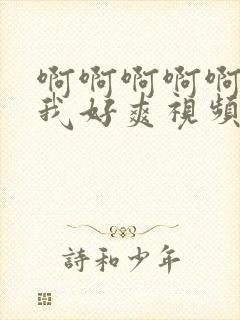 啊啊啊啊啊
我好爽视频
詩和少年